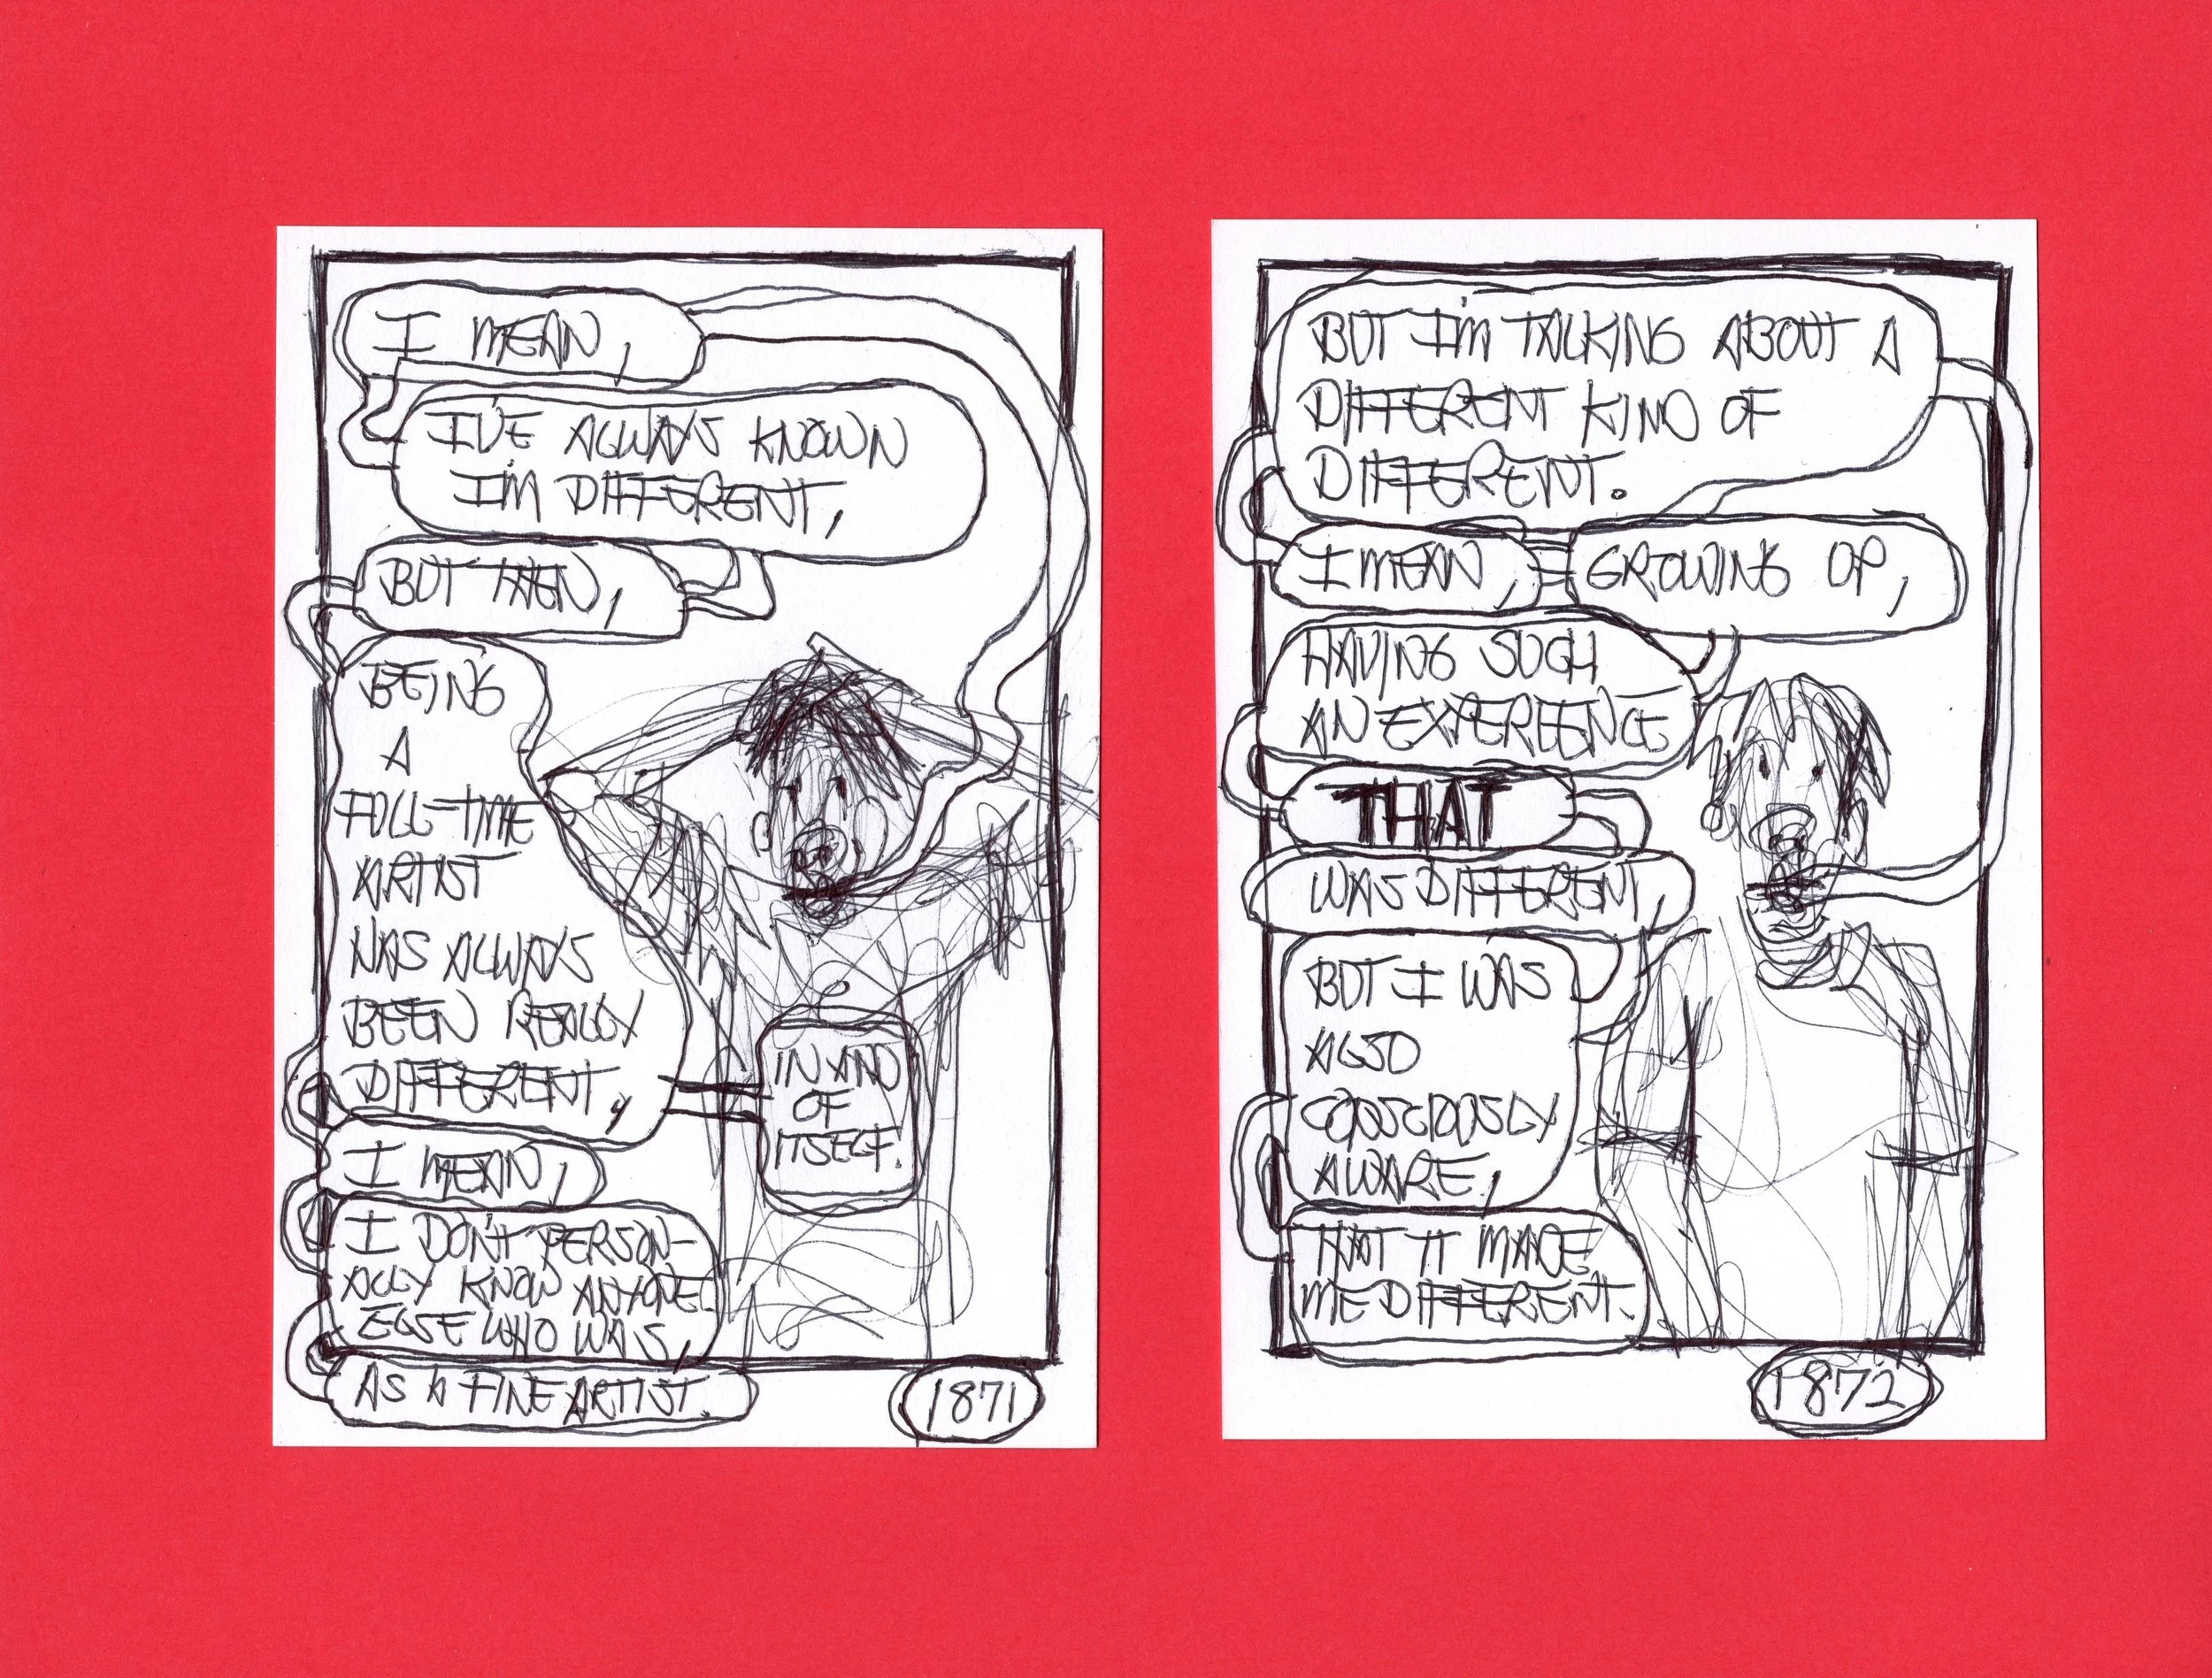 I MEAN,
I'VE ALWAYS KNOWN
I'M DIFFERENT,
BUT THEN,
BEING
A
FULL-TIME
ARTIST
HAS ALWAYS
BEEN REALLY
DIFFERENT,
IN AND
OF
ITSELF.
I MEAN,
I DON'T PERSON-
ALLY KNOW ANYONE
ELSE WHO WAS,
AS A FINE ARTIST.
1871
BUT I'M TALKING ABOUT A
DIFFERENT KIND OF
DIFFERENT.
I MEAN,
GROWING UP,
HAVING SUCH
AN EXPEREENCE
THAT
WAS DIFFERENT,
BUT I WAS
ALSO
CONSCIOUSLY
AWARE,
THAT IT MADE
ME DIFFERENT.
1872